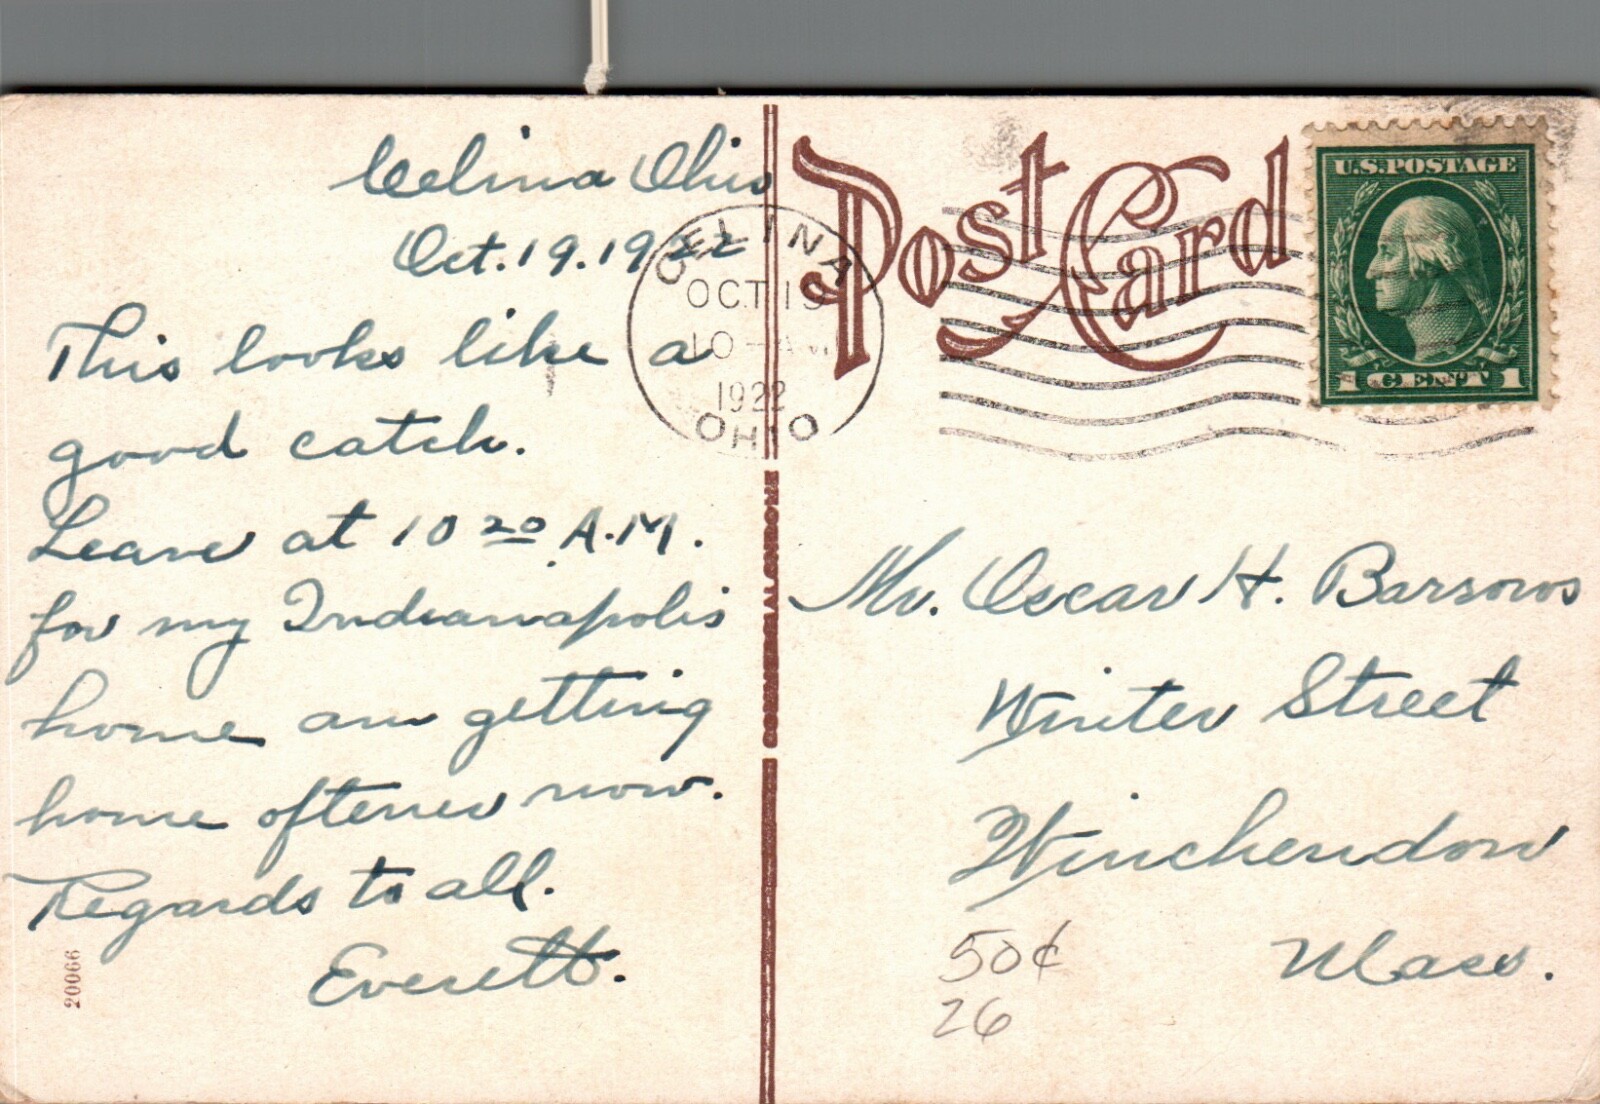 Celina Ohio
Oct. 19. 1922
This looks like a
good catch.
Leave at 10 20 A.M.
for my Indianapolis
home am getting
home oftener now.
Regards to all.
Everett.
20066
COMMERCIALCHROME
Post Card
CELINA
OCT 19
10-AM
1922
OHIO
U.S. POSTAGE
1 CENT 1
Mr. Oscar H. Barrows
Winter Street
Winchendon
Mass.
50¢
26